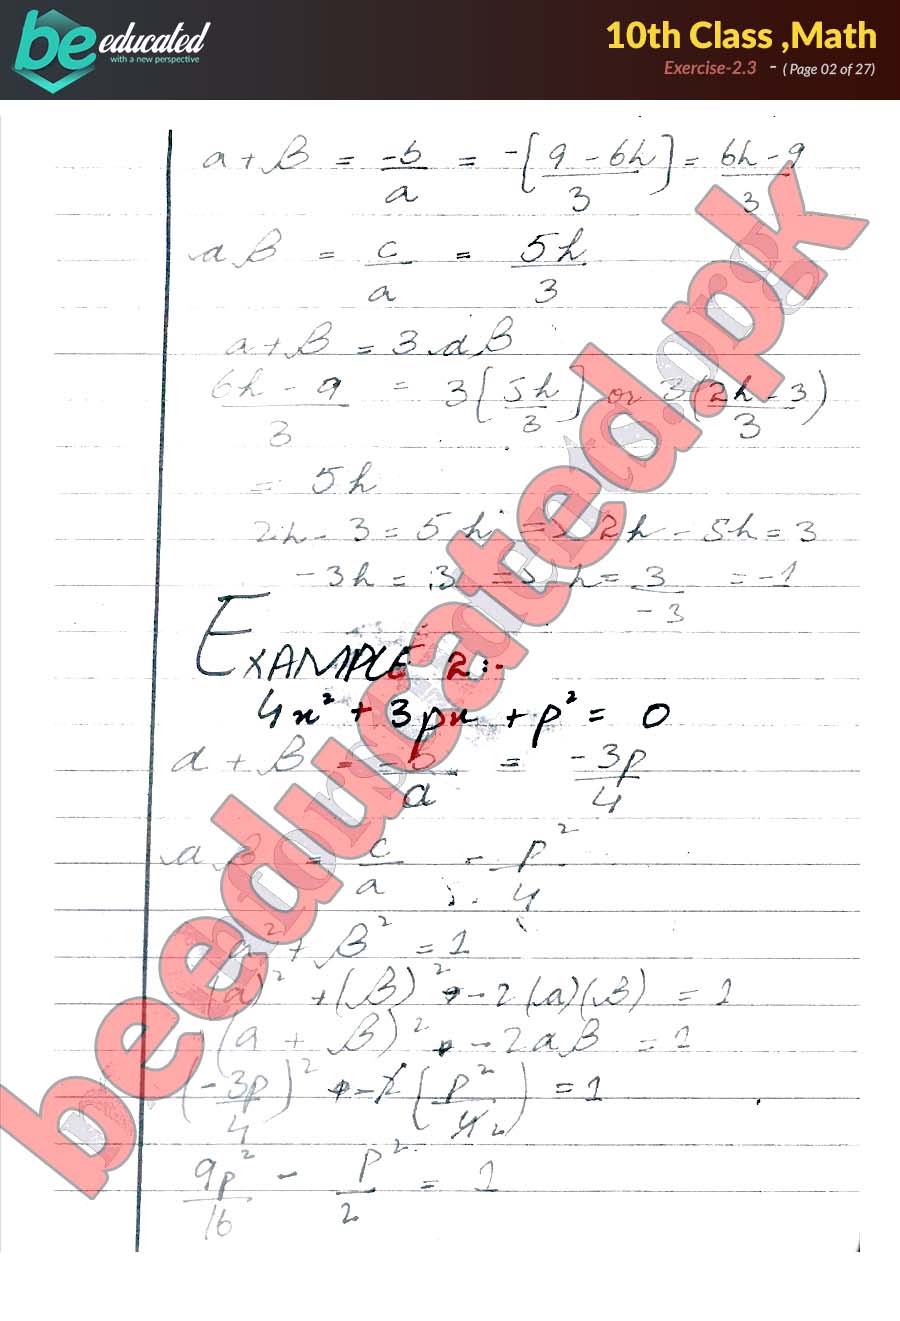 be educated
with a new perspective
10th Class ,Math
Exercise-2.3 - ( Page 02 of 27)
α + β = -b/a = -[9 - 6h/3] = 6h - 9/3
αβ = c/a = 5h/3
α + β = 3αβ
6h - 9/3 = 3[5h/3] or 3(2h - 3/3)
= 5h
2h - 3 = 5h => 2h - 5h = 3
-3h = 3 => h = 3/-3 = -1
EXAMPLE 2:-
4x² + 3px + p² = 0
α + β = -b/a = -3p/4
αβ = c/a = p²/4
α² + β² = 1
(α)² + (β)² - 2(α)(β) = 1
(α + β)² - 2αβ = 1
(-3p/4)² - 2(p²/4 2) = 1
9p²/16 - p²/2 = 1
beeducated.pk